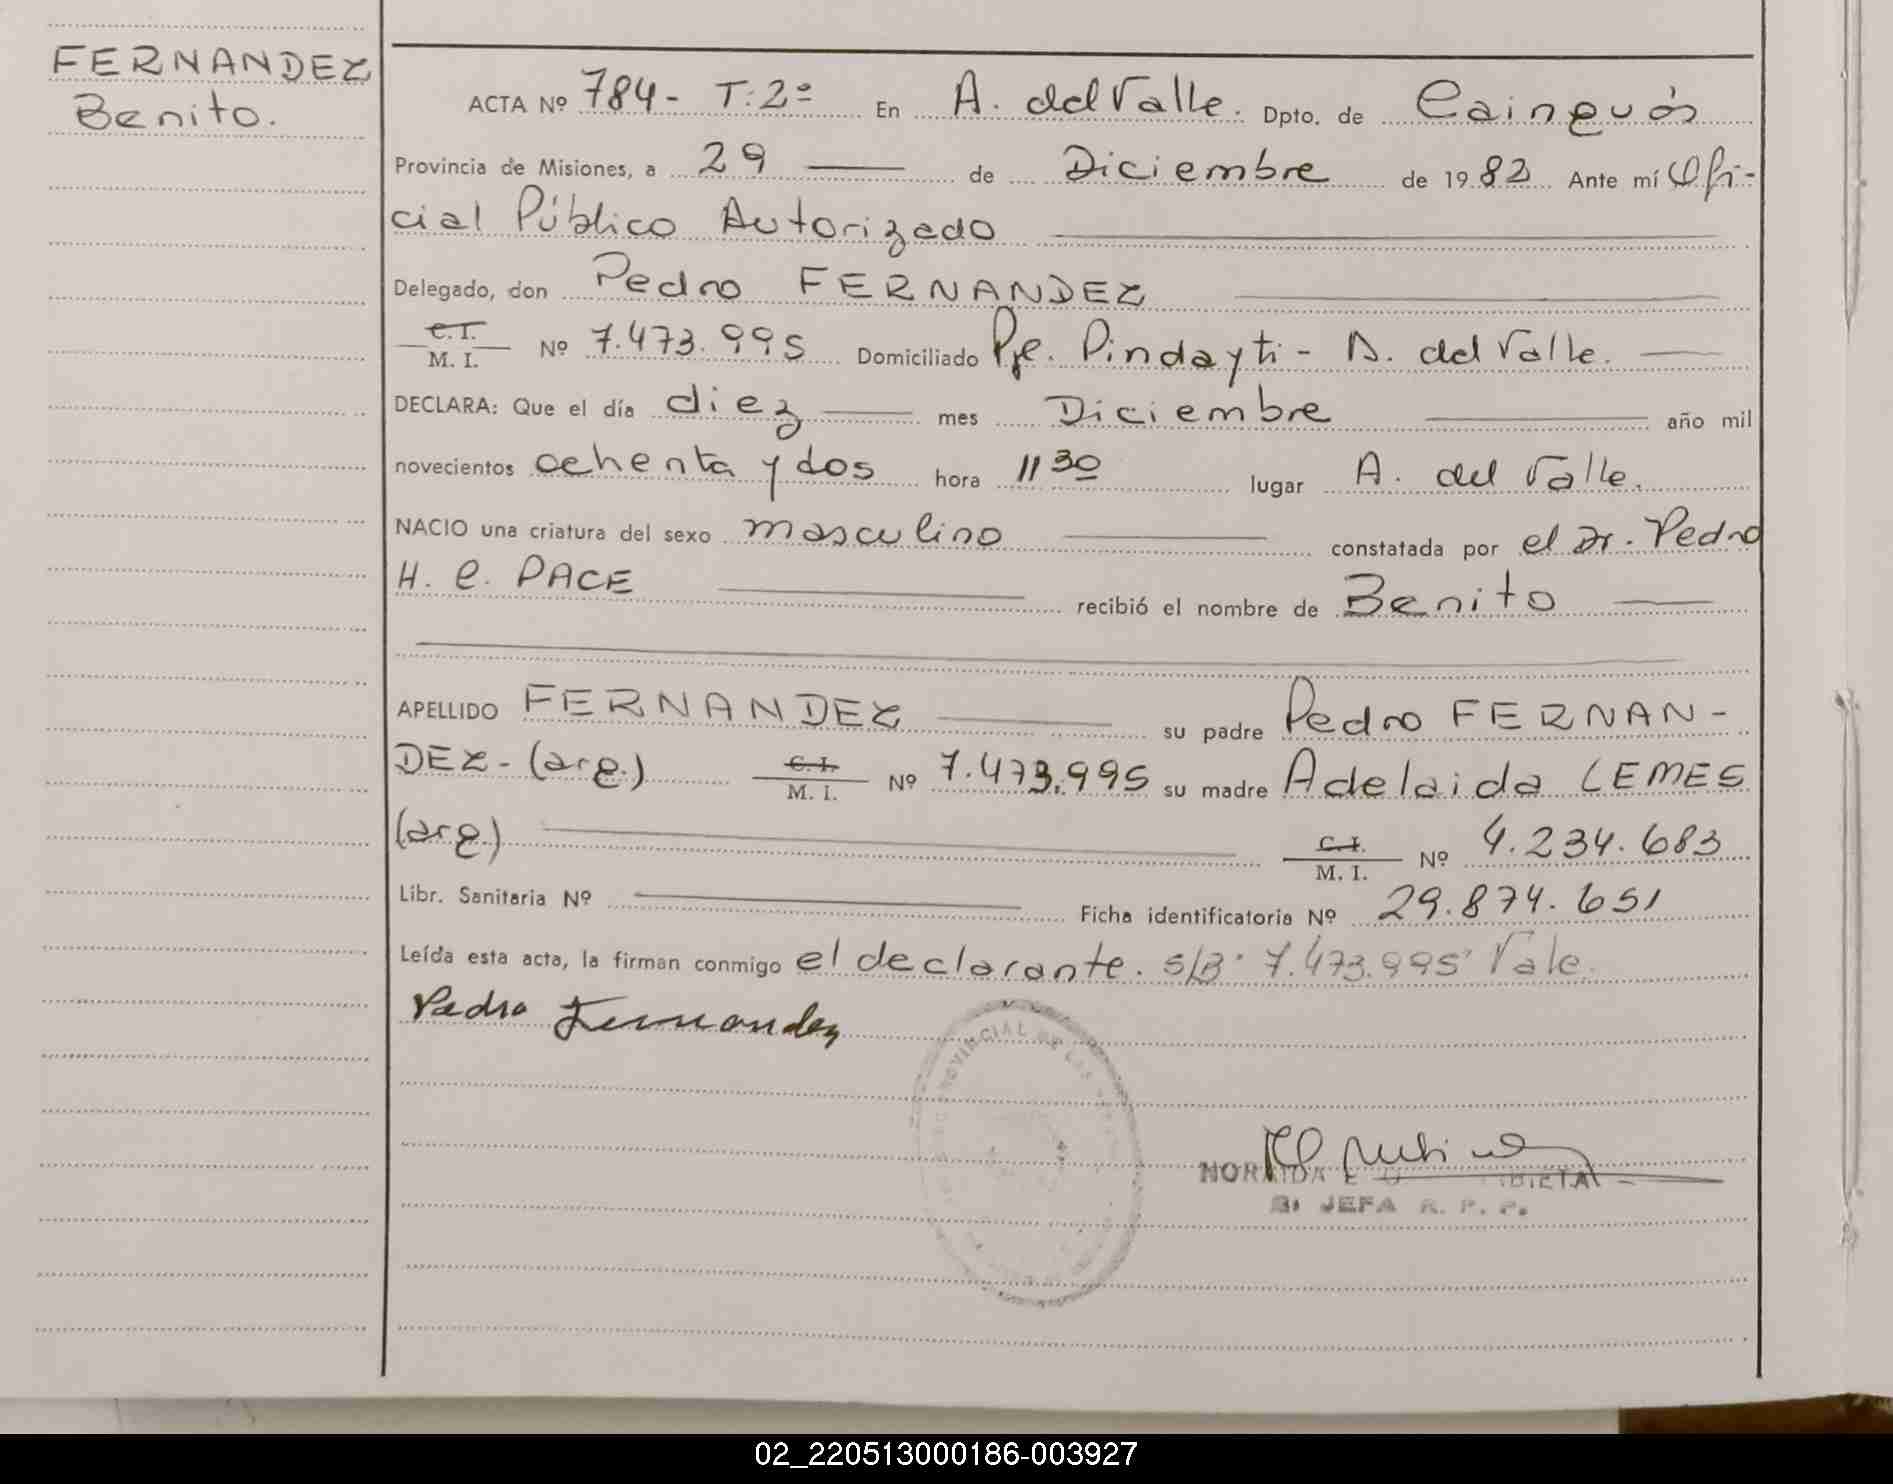 FERNANDEZ
Benito.
ACTA Nº 784- T: 2º En A. del Valle. Dpto. de Cainguás
Provincia de Misiones, a 29 de Diciembre de 1982 Ante mí Ofi-
cial Público Autorizado
Delegado, don Pedro FERNANDEZ
C. I.
M. I. Nº 7.473.995 Domiciliado Pje. Pindayti - A. del Valle.
DECLARA: Que el día diez mes Diciembre año mil
novecientos ochenta y dos hora 11 30 lugar A. del Valle.
NACIO una criatura del sexo masculino constatada por el Dr. Pedro
H. C. PACE recibió el nombre de Benito
APELLIDO FERNANDEZ su padre Pedro FERNAN-
DEZ - (arg.) C. I. M. I. Nº 7.473.995 su madre Adelaida LEMES
(arg.) C. I. M. I. Nº 4.234.683
Libr. Sanitaria Nº Ficha identificatoria Nº 29.874.651
Leída esta acta, la firman conmigo el declarante. s/B: 7.473.995" Vale.
Pedro Fernandez
PROVINCIAL DE LAS
NORAIDA E
JEFA R. P. P.
02_220513000186-003927